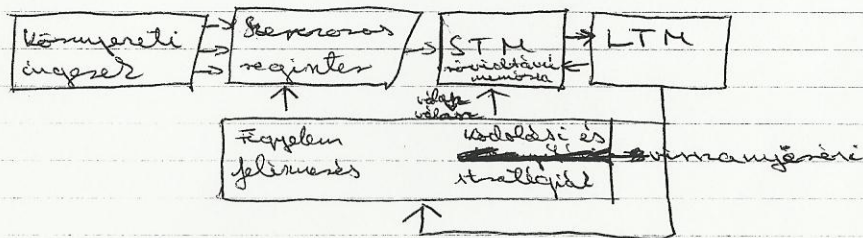 Környezeti
ingerek
Szenzoros
regiszter
STM
rövidtávú
memória
LTM
válasz
Figyelem
felismerés
kódolási és
visszanyerési
stratégiák